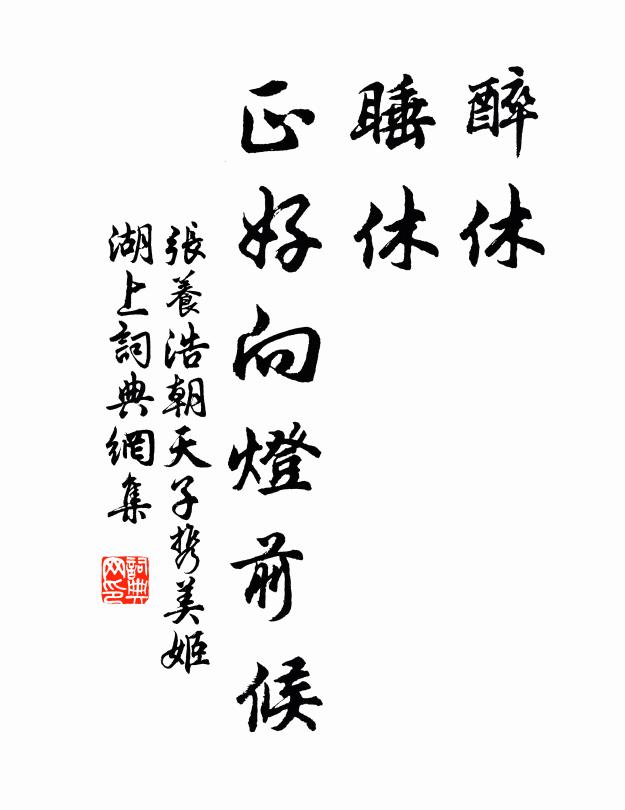 醉休
睡休
正好向燈前候
張養浩朝天子携美姬
湖上詞典網集
詞典
网印